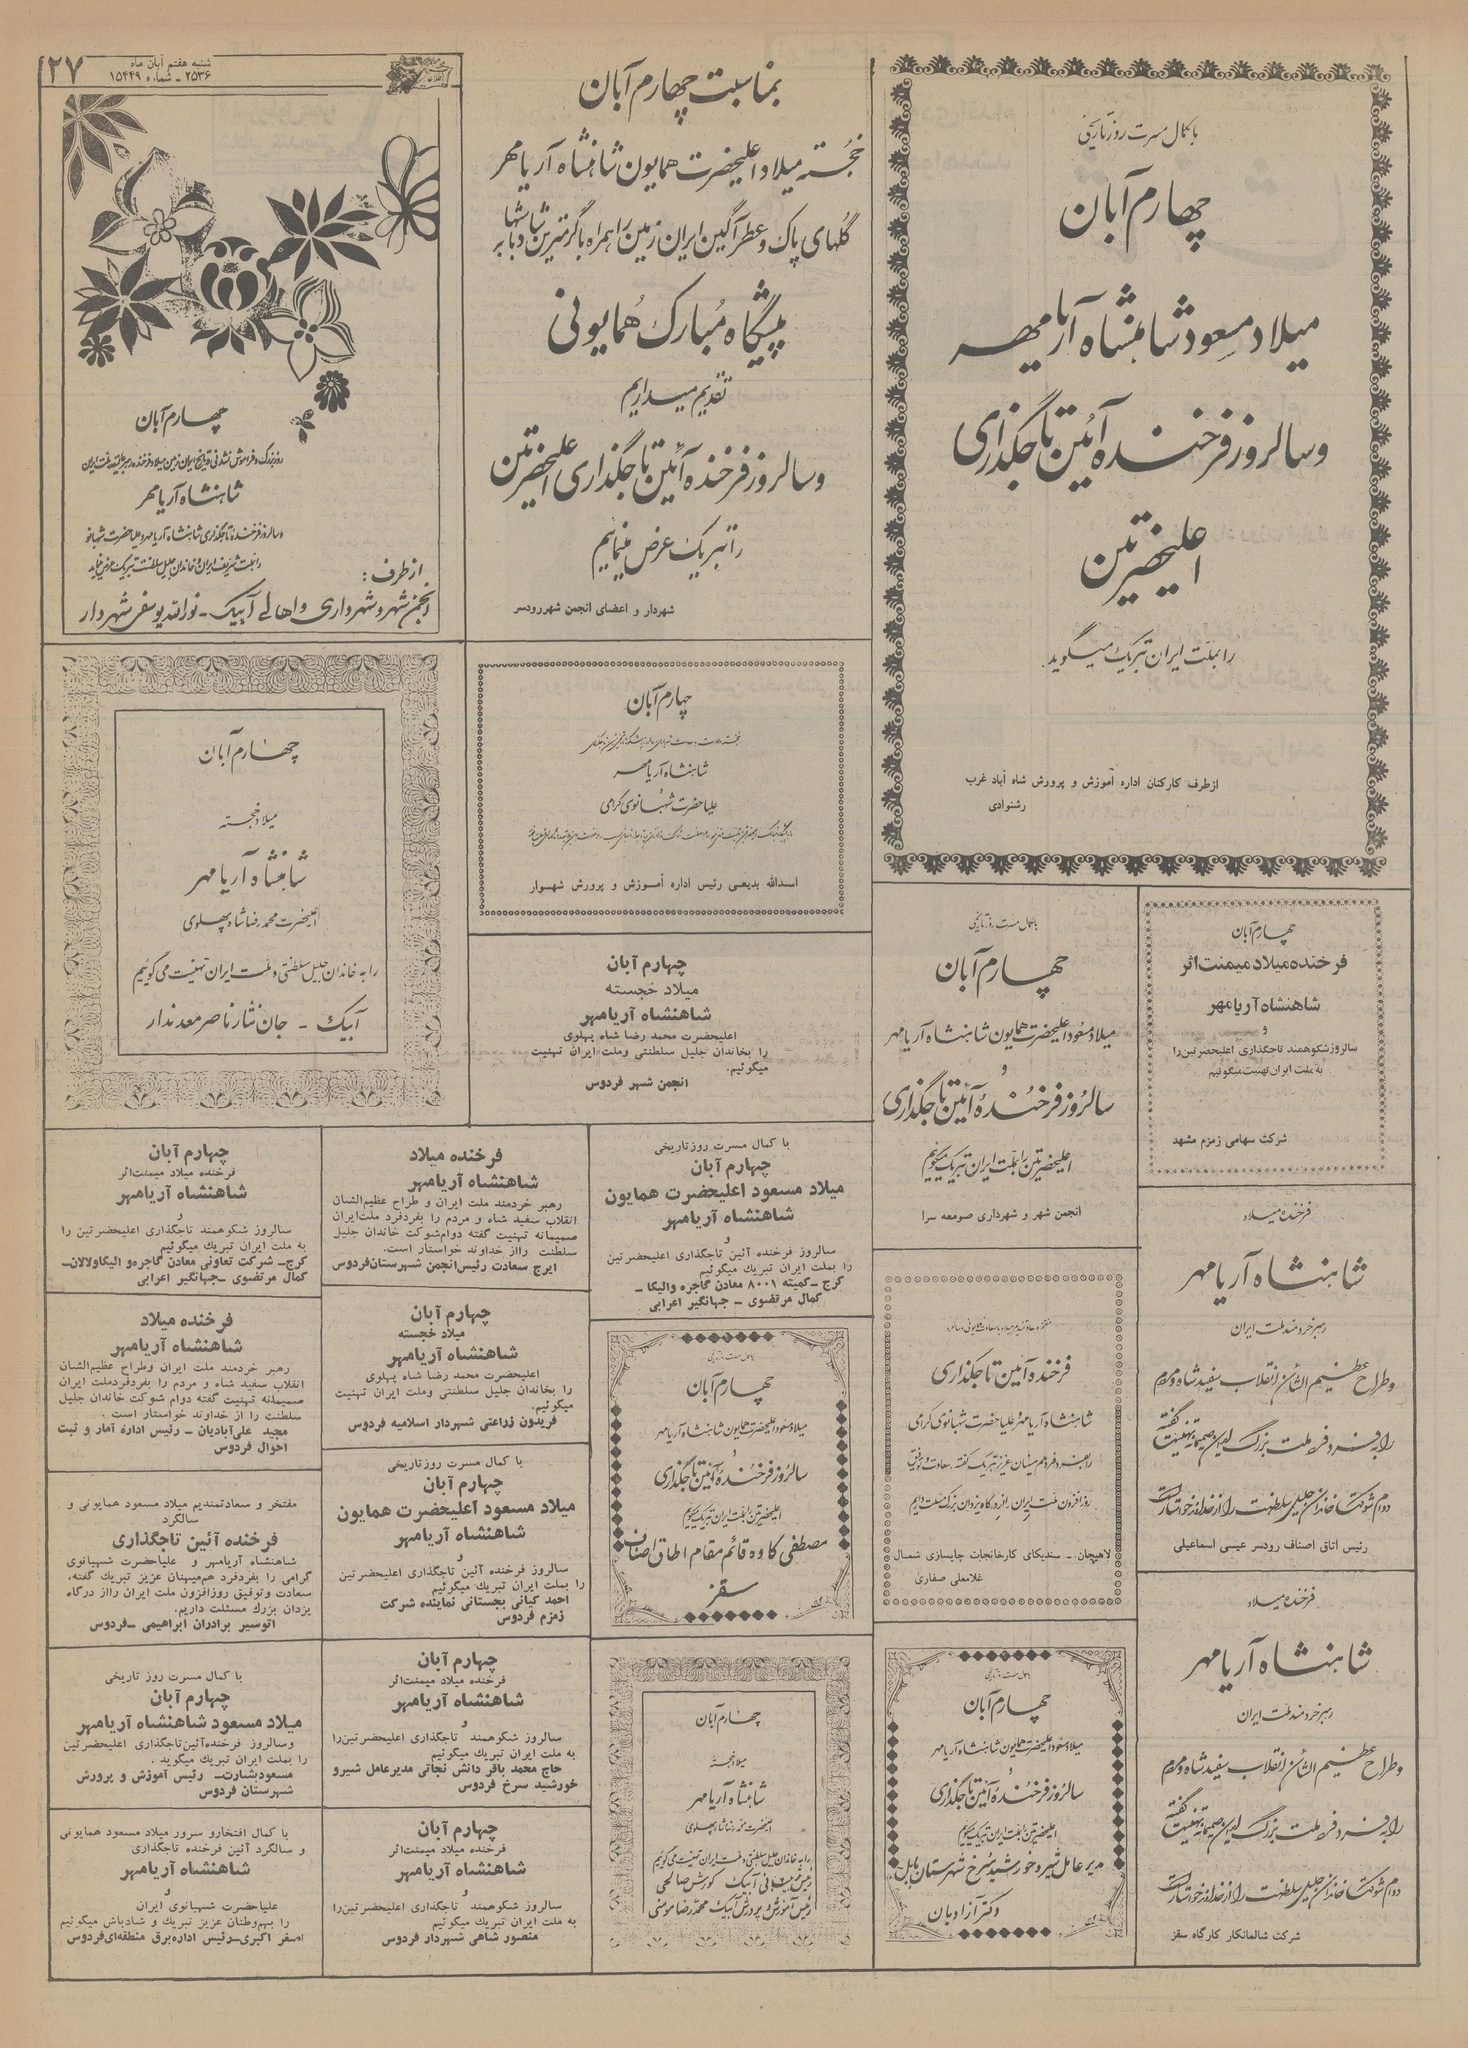 ۲۷
شنبه هفتم آبان ماه
۲۵۳۶ ـ شماره ۱۵۴۴۹
با کمال مسرت روز تاریخی
چهارم آبان
میلاد مسعود شاهنشاه آریامهر
و سالروز فرخنده آئین تاجگذاری
اعلیحضرتین
را بملت ایران تبریک میگوید.
ازطرف کارکنان اداره آموزش و پرورش شاه آباد غرب
رشنوادی
بمناسبت چهارم آبان
خجسته میلاد اعلیحضرت همایون شاهنشاه آریامهر
گلهای پاک و عطرآگین ایران زمین را همراه با گرمترین شادباشها به
پیشگاه مبارک همایونی
تقدیم میداریم
و سالروز فرخنده آئین تاجگذاری اعلیحضرتین
را تبریک عرض مینمائیم
شهردار و اعضای انجمن شهررودسر
چهارم آبان
شاهنشاه آریامهر
و سالروز فرخنده تاجگذاری شاهنشاه آریامهر و علیاحضرت شهبانو
ازطرف :
انجمن شهر و شهرداری و اهالی آبیک ـ نورالله یوسفی شهردار
چهارم آبان
شاهنشاه آریامهر
علیاحضرت شهبانوی گرامی
اسدالله بدیعی رئیس اداره آمـوزش و پرورش شهسوار
چهارم آبان
میلاد خجسته
شاهنشاه آریامهر
اعلیحضرت محمد رضا شاه پهلوی
را به خاندان جلیل سلطنتی و ملت ایران تهنیت می گوئیم
آبیک ـ جان نثار ناصر معدندار
چهارم آبان
فرخنده میلاد میمنت اثر
شاهنشاه آریامهر
و
سالروز شکوهمند تاجگذاری اعلیحضرتین را
به ملت ایران تهنیت میگوئیم
شرکت سهامی زمزم مشهد
با کمال مسرت روز تاریخی
چهارم آبان
میلاد مسعود اعلیحضرت همایون شاهنشاه آریامهر
و
سالروز فرخنده آئین تاجگذاری
اعلیحضرتین را بملت ایران تبریک میگوئیم
انجمن شهر و شهرداری صومعه سرا
چهارم آبان
میلاد خجسته
شاهنشاه آریامهر
اعلیحضرت محمد رضا شاه پهلوی
را بخاندان جلیل سلطنتی وملت ایران تهنیت
میگوئیم.
انجمن شهر فردوس
با کمال مسرت روزتاریخی
چهارم آبان
میلاد مسعود اعلیحضرت همایون
شاهنشاه آریامهر
و
سالروز فرخنده آئین تاجگذاری اعلیحضرتین
را بملت ایران تبریک میگوئیم
کرج ـ کمیته ۸۰۰۱ معادن گاجره والیگا ـ
کمال مرتضوی ـ جهانگیر اعرابی
فرخنده میلاد
شاهنشاه آریامهر
رهبر خردمند ملت ایران و طراح عظیم‌الشان
انقلاب سفید شاه و مردم را بفردفرد ملت‌ایران
صمیمانه تهنیت گفته دوام‌شوکت خاندان جلیل
سلطنت رااز خداوند خواستار است.
ایرج سعادت رئیس‌انجمن شهرستان‌فردوس
چهارم آبان
فرخنده میلاد میمنت‌اثر
شاهنشاه آریامهر
و
سالروز شکوهمند تاجگذاری اعلیحضرتین را
به ملت ایران تبریك میگوئیم
کرج ـ شرکت تعاونی معادن گاجره‌و الیگاولالان ـ
کمال مرتضوی ـ جهانگیر اعرابی
فرخنده میلاد
شاهنشاه آریامهر
رهبر خردمند ملت ایران
و طراح عظیم الشأن انقلاب سفید شاه و مردم
را به فرد فرد ملت بزرگ ایران صمیمانه تهنیت گفته
دوام شوکت خاندان جلیل سلطنت را از خداوند خواستار است
رئیس اتاق اصناف رودسر عیسی اسماعیلی
فرخنده آئین تاجگذاری
شاهنشاه آریامهر و علیاحضرت شهبانوی گرامی
را بفرد فرد هم میهنان عزیز تبریک گفته سعادت و توفیق
روزافزون ملت ایران را از درگاه یزدان بزرگ مسئلت داریم
لاهیجان ـ سندیکای کارخانجات چایسازی شمـال
غلامعلی صفاری
با کمال مسرت روز تاریخی
چهارم آبان
میلاد مسعود اعلیحضرت همایون شاهنشاه آریامهر
و
سالروز فرخنده آئین تاجگذاری
اعلیحضرتین را بملت ایران تبریک میگوئیم
مصطفی کاوه قائم مقام اطاق اصناف
سقز
چهارم آبان
میلاد خجسته
شاهنشاه آریامهر
اعلیحضرت محمد رضا شاه پهلوی
را بخاندان جلیل سلطنتی وملت ایران تهنیت
میگوئیم.
فریدون زراعتی شهردار اسلامیه فردوس
فرخنده میلاد
شاهنشاه آریامهر
رهبر خردمند ملت ایران وطراح عظیم‌الشان
انقلاب سفید شاه و مردم را بفردفردملت ایران
صمیمانه تهنیت گفته دوام شوکت خاندان جلیل
سلطنت را از خداوند خواستار است .
مجید علی‌آبادیان ـ رئیس اداره آمار و ثبت
احوال فردوس
با کمال مسرت روزتاریخی
چهارم آبان
میلاد مسعود اعلیحضرت همایون
شاهنشاه آریامهر
و
سالروز فرخنده آئین تاجگذاری اعلیحضرتین
را بملت ایران تبریك میگوئیم
احمد کیانی بجستانی نماینده شرکت
زمزم فردوس
مفتخر و سعادتمندیم میلاد مسعود همایونی و
سالگرد
فرخنده آئین تاجگذاری
شاهنشاه آریامهر و علیاحضرت شهبانوی
گرامی را بفردفرد هم‌میهنان عزیز تبریك گفته،
سعادت وتوفیق روزافزون ملت ایران رااز درگاه
یزدان بزرگ مسئلت داریم.
اتوسیر برادران ابراهیمی ـ فردوس
فرخنده میلاد
شاهنشاه آریامهر
رهبر خردمند ملت ایران
و طراح عظیم الشأن انقلاب سفید شاه و مردم
را به فرد فرد ملت بزرگ ایران صمیمانه تهنیت گفته
دوام شوکت خاندان جلیل سلطنت را از خداوند خواستار است
شرکت شالمانکار کارگاه سقز
با کمال مسرت روز تاریخی
چهارم آبان
میلاد مسعود اعلیحضرت همایون شاهنشاه آریامهر
و
سالروز فرخنده آئین تاجگذاری
اعلیحضرتین را بملت ایران تبریک میگوئیم
مدیر عامل شیر و خورشید سرخ شهرستان بابل
دکتر آزادیان
چهارم آبان
میلاد خجسته
شاهنشاه آریامهر
اعلیحضرت محمد رضا شاه پهلوی
را به خاندان جلیل سلطنتی و ملت ایران تهنیت می گوئیم
کورش صالحی
رئیس آموزش و پرورش آبیک محمد رضا مؤمنی
چهارم آبان
فرخنده میلاد میمنت‌اثر
شاهنشاه آریامهر
و
سالروز شکوهمند تاجگذاری اعلیحضرتین‌را
به ملت ایران تبریك میگوئیم
حاج محمد باقر دانش نجاتی مدیرعامل شیرو
خورشید سرخ فردوس
با کمال مسرت روز تاریخی
چهارم آبان
میلاد مسعود شاهنشاه آریامهر
وسالروز فرخنده‌آئین‌تاجگذاری اعلیحضرتین
را بملت ایران تبریك میگوید .
مسعودبشارت ـ رئیس آموزش و پرورش
شهرستان فردوس
چهارم آبان
فرخنده میلاد میمنت‌اثر
شاهنشاه آریامهر
و
سالروز شکوهمند تاجگذاری اعلیحضرتین‌را
به ملت ایران تبریك میگوئیم
منصور شاهی شهردار فردوس
با کمال افتخارو سرور میلاد مسعود همایونی
و سالگرد آئین فرخنده تاجگذاری
شاهنشاه آریامهر
و
علیاحضرت شهبانوی ایران
را بهم‌وطنان عزیز تبریك و شادباش میگوئیم
اصغر اکبری ـ رئیس اداره‌برق منطقه‌ای‌فردوس